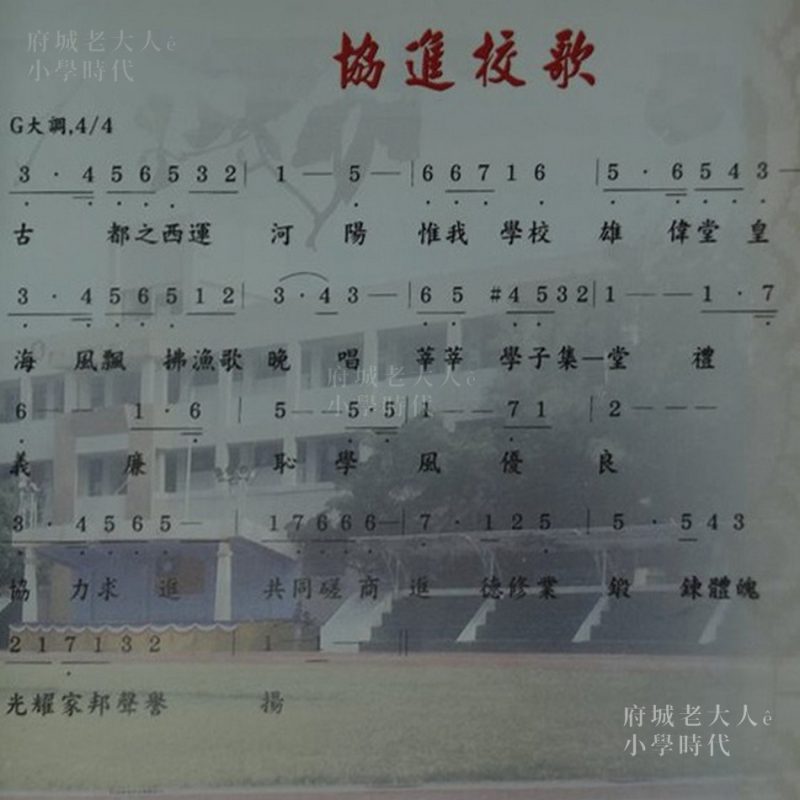 府城老大人ê
小學時代
協進校歌
G大調,4/4
3 · 4 5 6 5 3 2 | 1 — 5 — | 6 6 7 1 6 | 5 · 6 5 4 3 —
古 都之西運 河 陽 惟我 學校 雄 偉堂 皇
3 · 4 5 6 5 1 2 | 3 · 4 3 — | 6 5 #4 5 3 2 | 1 — — 1 · 7
海 風飄 拂漁歌 晚 唱 莘莘 學子集一堂 禮
府城老大人ê
小學時代
6 — — 1 · 6 | 5 — — 5 · 5 | 1 — — 7 1 | 2 — — —
義 廉 恥 學 風 優 良
3 · 4 5 6 5 — | 1 7 6 6 6 — | 7 · 1 2 5 | 5 · 5 4 3
協 力求 進 共同磋 商 進 德修業 鍛 鍊體魄
2 1 7 1 3 2 | 1 — — ||
光耀家邦聲譽 揚
府城老大人ê
小學時代